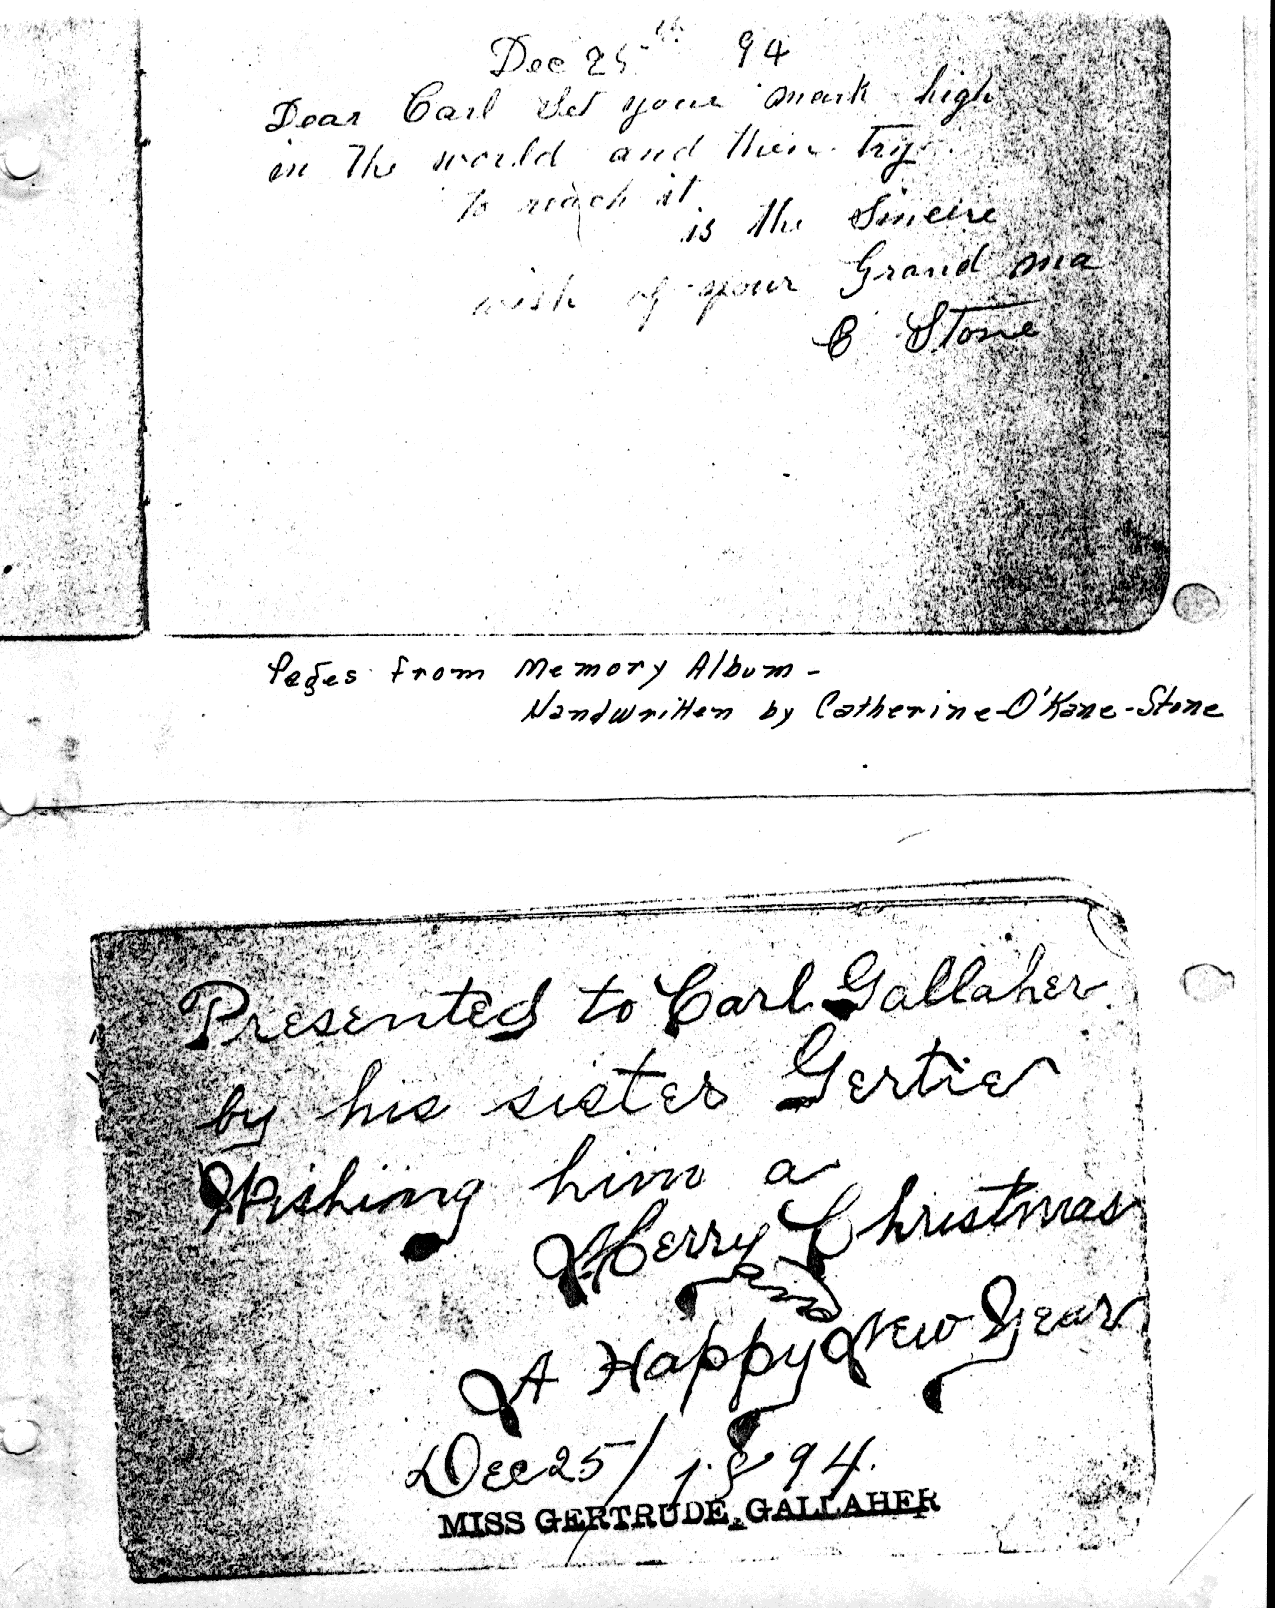 Dec 25th 94
Dear Carl Set your mark high
in the world and then try
to reach it
is the Sincere
wish of your Grand ma
C Stone
Pages from Memory Album -
Handwritten by Catherine-O'Kane-Stone
Presented to Carl Gallaher
by his sister Gertie
Wishing him a
Merry Christmas
and
A Happy New Year
Dec 25/1894.
MISS GERTRUDE GALLAHER